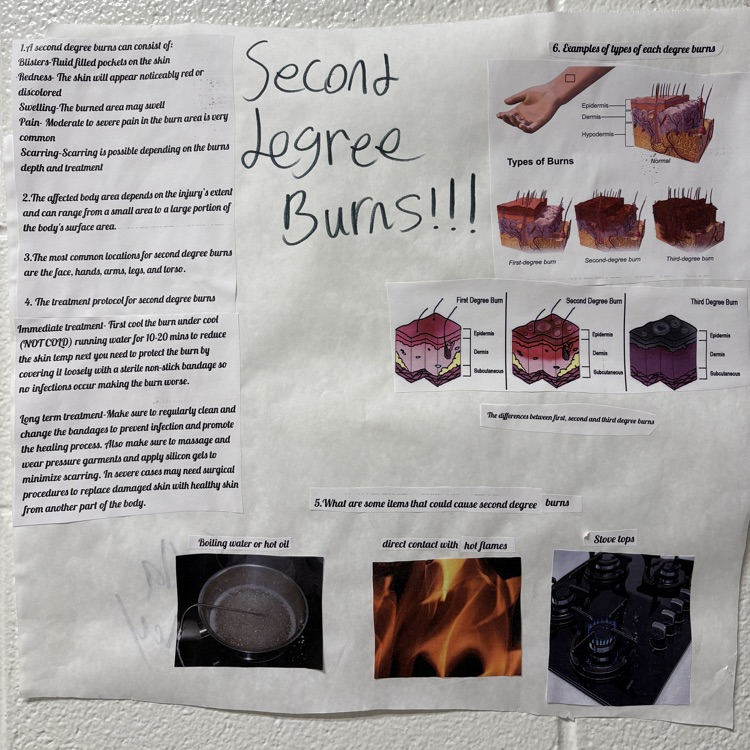 1.A second degree burns can consist of:
Blisters-Fluid filled pockets on the skin
Redness- The skin will appear noticeably red or
discolored
Swelling-The burned area may swell
Pain- Moderate to severe pain in the burn area is very
common
Scarring-Scarring is possible depending on the burns
depth and treatment
2.The affected body area depends on the injury's extent
and can range from a small area to a large portion of
the body's surface area.
3.The most common locations for second degree burns
are the face, hands, arms, legs, and torso.
4. The treatment protocol for second degree burns
Immediate treatment- First cool the burn under cool
(NOT COLD) running water for 10-20 mins to reduce
the skin temp next you need to protect the burn by
covering it loosely with a sterile non-stick bandage so
no infections occur making the burn worse.
Long term treatment-Make sure to regularly clean and
change the bandages to prevent infection and promote
the healing process. Also make sure to massage and
wear pressure garments and apply silicon gels to
minimize scarring. In severe cases may need surgical
procedures to replace damaged skin with healthy skin
from another part of the body.
Second
degree
Burns!!!
6. Examples of types of each degree burns
Epidermis
Dermis
Hypodermis
Normal
Types of Burns
First-degree burn
Second-degree burn
Third-degree burn
First Degree Burn
Epidermis
Dermis
Subcutaneous
Second Degree Burn
Epidermis
Dermis
Subcutaneous
Third Degree Burn
Epidermis
Dermis
Subcutaneous
The differences between first, second and third degree burns
5.What are some items that could cause second degree burns
Boiling water or hot oil
direct contact with hot flames
Stove tops